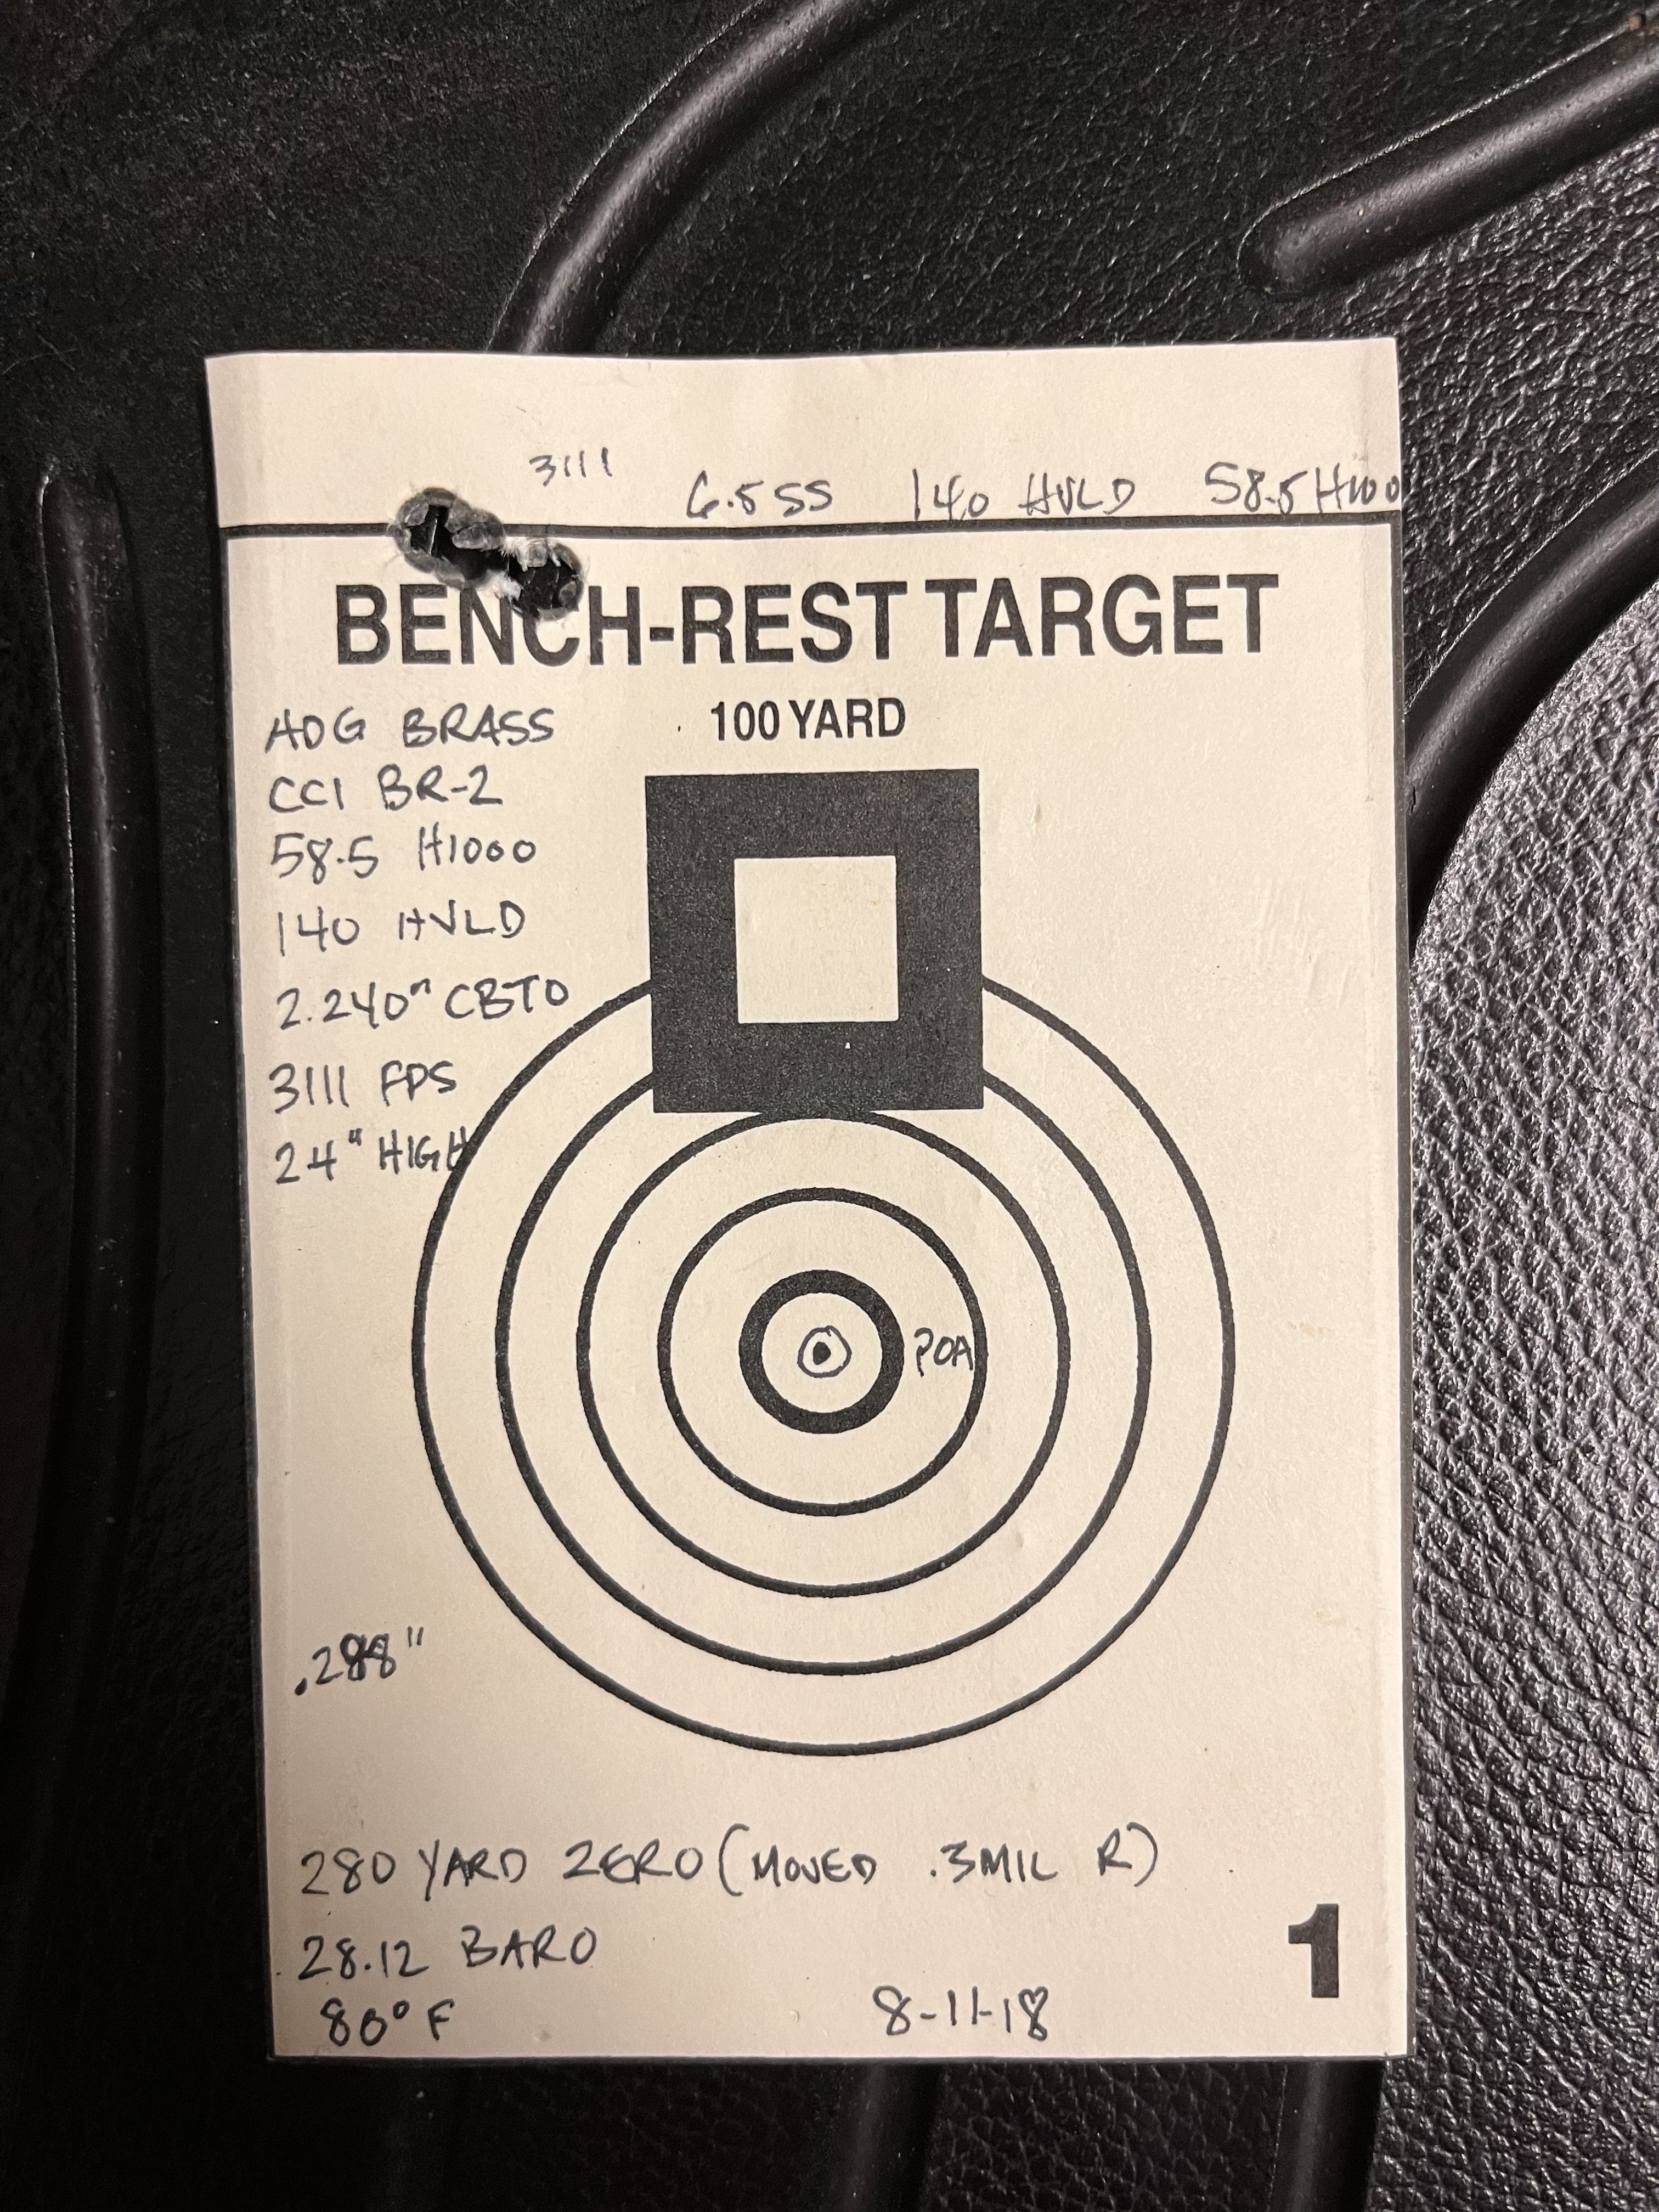 3111
6.5 SS 140 HVLD 58.5 H1000
BENCH-REST TARGET
100 YARD
ADG BRASS
CCI BR-2
58.5 H1000
140 HVLD
2.240" CBTO
3111 FPS
2.4" HIGH
POA
.288"
280 YARD ZERO (MOVED .3MIL R)
28.12 BARO
80° F
8-11-18
1